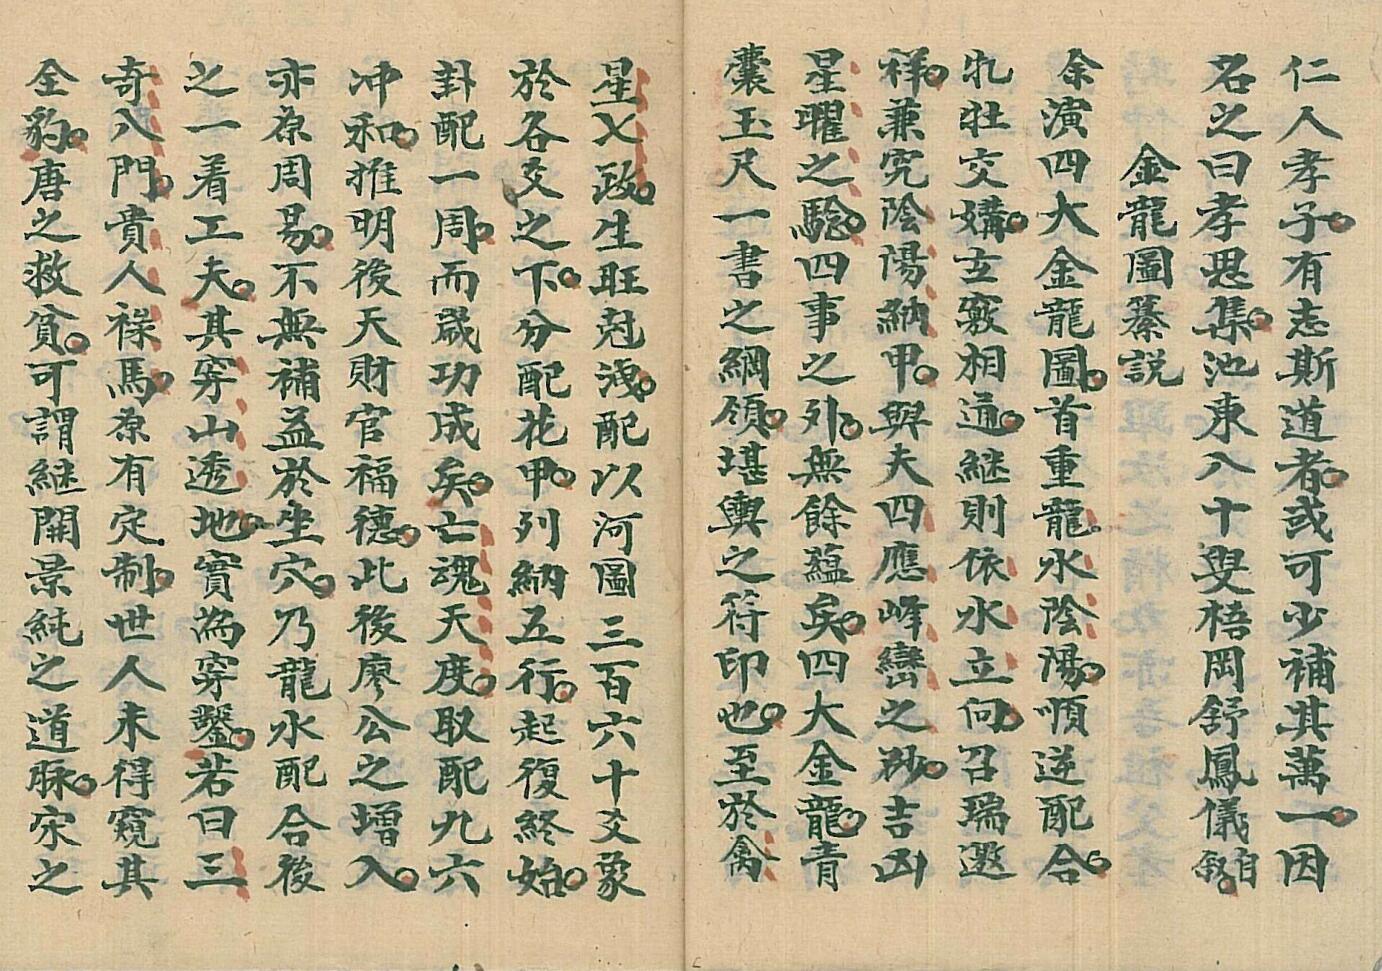 仁人孝子有志斯道者或可少補其萬一因
名之曰孝思集池東八十叟梧岡舒鳳儀自敘
金龍圖纂説
余演四大金龍圖首重龍水陰陽順逆配合
牝牡交媾玄竅相通継則依水立向召瑞迎
祥兼究陰陽納甲與夫四應峰巒之砂吉凶
星曜之騐四事之外無餘蘊矣四大金龍青
囊玉尺一書之綱領堪輿之符印也至於禽
星七政生旺尅洩配以河圖三百六十爻象
於各爻之下分配花甲列納五行起復終始
卦配一周而歲功成矣亡魂天度取配九六
冲和推明後天財官福德此後廖公之增入
亦原周易不無補益於生穴乃龍水配合後
之一着工夫其穿山透地實為穿鑿若曰三
奇八門貴人禄馬原有定制世人未得窺其
全豹唐之救貧可謂継開景純之道脉宋之